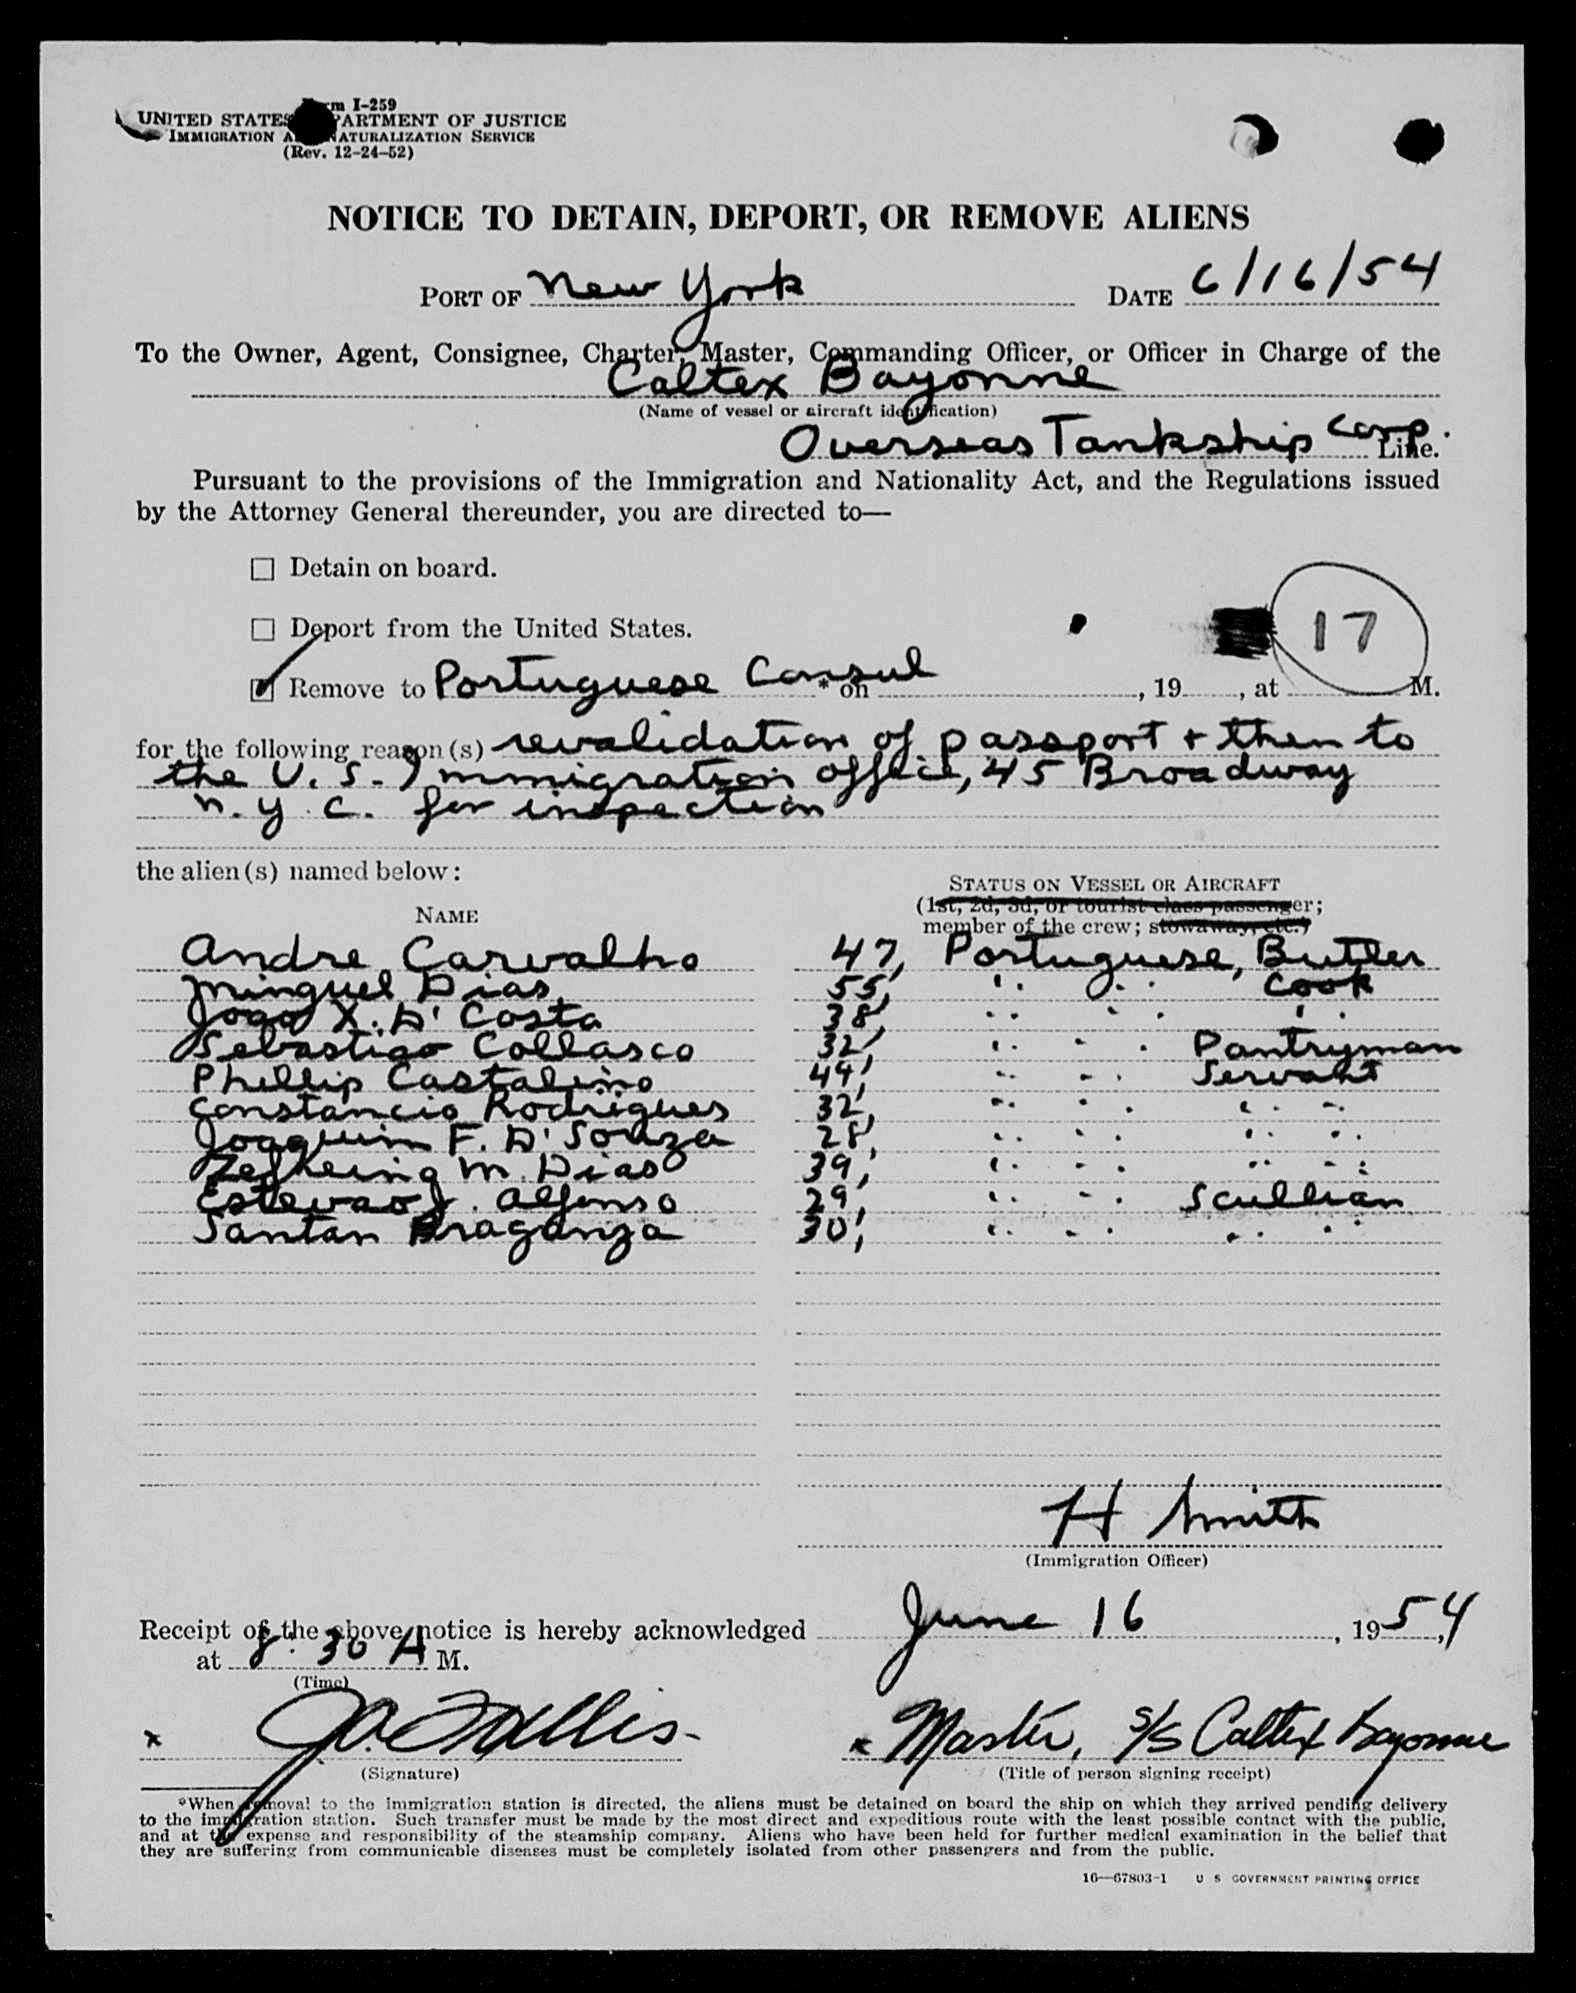 Form I-259
UNITED STATES DEPARTMENT OF JUSTICE
IMMIGRATION AND NATURALIZATION SERVICE
(Rev. 12-24-52)
NOTICE TO DETAIN, DEPORT, OR REMOVE ALIENS
PORT OF New York DATE 6/16/54
To the Owner, Agent, Consignee, Charter, Master, Commanding Officer, or Officer in Charge of the
Caltex Bayonne
(Name of vessel or aircraft identification)
Overseas Tankship Corp. Line.
Pursuant to the provisions of the Immigration and Nationality Act, and the Regulations issued
by the Attorney General thereunder, you are directed to—
☐ Detain on board.
☐ Deport from the United States. 17
☑ Remove to Portuguese Consul * on , 19 , at M.
for the following reason(s) revalidation of passport + then to
the U.S. Immigration office, 45 Broadway
N.Y.C. for inspection
the alien(s) named below:
STATUS ON VESSEL OR AIRCRAFT
NAME (1st, 2d, 3d, or tourist class passenger;
member of the crew; stowaway, etc.)
Andre Carvalho 47, Portuguese, Butler
Minguel Dias 55, " " Cook
Joao X. D'Costa 38, " " "
Sebastiao Collasco 32, " " Pantryman
Phillip Castalino 49, " " Servant
Constancio Rodrigues 32, " " " "
Joaquim F. D'Souza 28, " " " "
M. Dias 39, " " " "
Estevao J. Alfonso 29, " " Scullian
Santan Braganza 30, " " " "
H Smith
(Immigration Officer)
Receipt of the above notice is hereby acknowledged June 16, 1954,
at 8:30 A M.
(Time)
x J.A. Fallis x Master, S/S Caltex Bayonne
(Signature) (Title of person signing receipt)
*When removal to the immigration station is directed, the aliens must be detained on board the ship on which they arrived pending delivery
to the immigration station. Such transfer must be made by the most direct and expeditious route with the least possible contact with the public,
and at the expense and responsibility of the steamship company. Aliens who have been held for further medical examination in the belief that
they are suffering from communicable diseases must be completely isolated from other passengers and from the public.
16—67803-1 U S GOVERNMENT PRINTING OFFICE